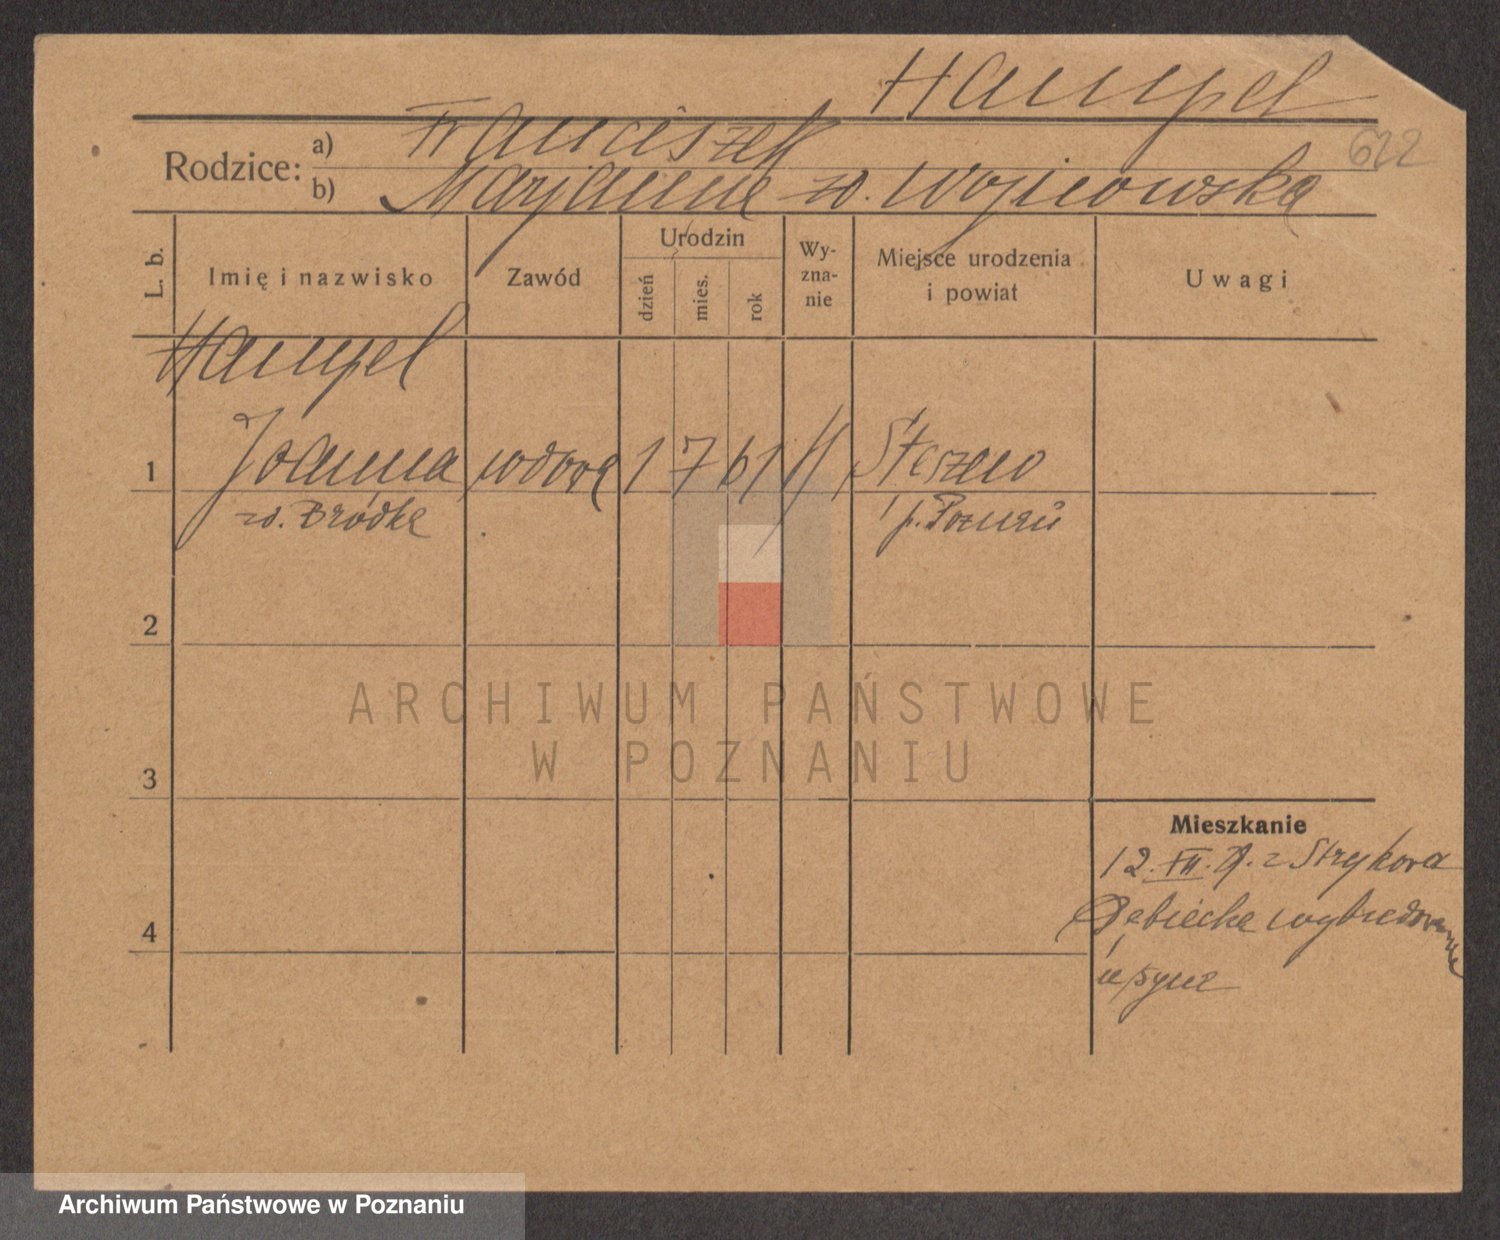 Hampel
622
Rodzice: a) Franciszek
b) Marjanna zd. Wojnowska
L. b.
Imię i nazwisko
Zawód
Urodzin
dzień
mies.
rok
Wy-
zna-
nie
Miejsce urodzenia
i powiat
Uwagi
Hampel
1 Joanna wdowa 1 7 61 Stęszew
zd. Bródka p. Poznań
2
3
4
Mieszkanie
12. z Strykowa
Dębiecka
u syna
ARCHIWUM PAŃSTWOWE
W POZNANIU
Archiwum Państwowe w Poznaniu